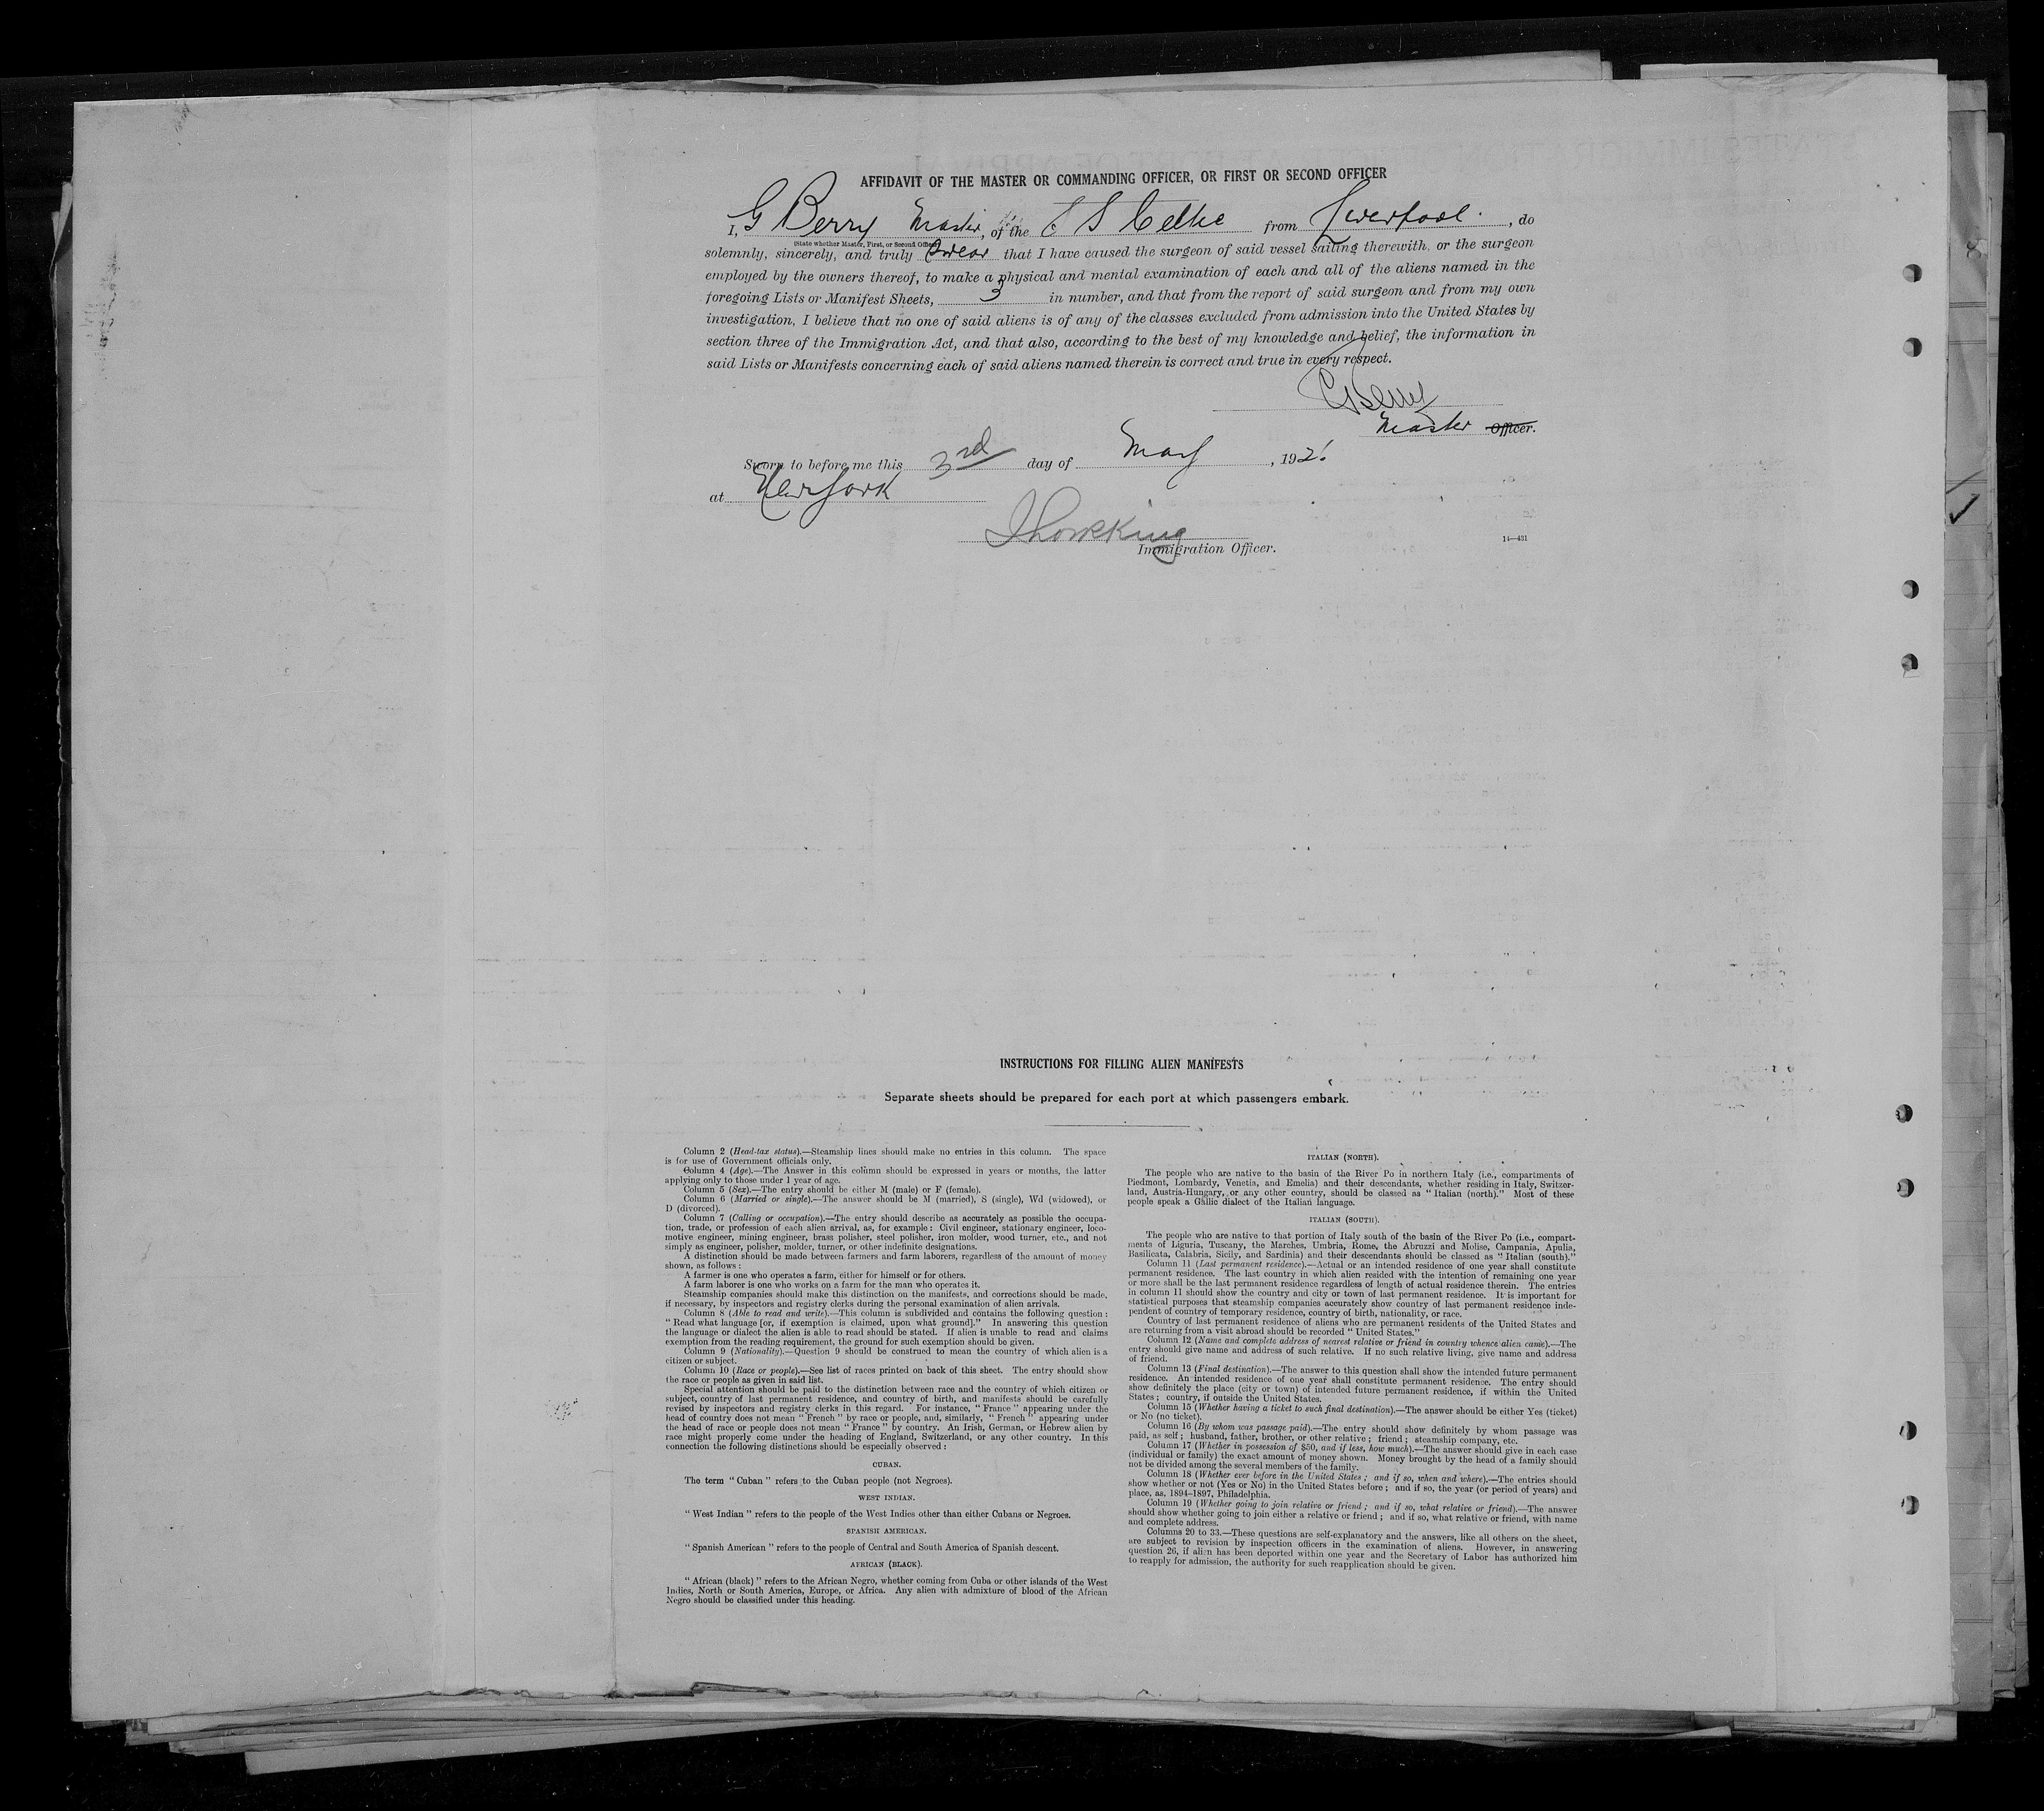 AFFIDAVIT OF THE MASTER OR COMMANDING OFFICER, OR FIRST OR SECOND OFFICER
I, G Berry Master, of the S S Celtic from Liverpool., do
(State whether Master, First, or Second Officer)
solemnly, sincerely, and truly swear that I have caused the surgeon of said vessel sailing therewith, or the surgeon
employed by the owners thereof, to make a physical and mental examination of each and all of the aliens named in the
foregoing Lists or Manifest Sheets, 3 in number, and that from the report of said surgeon and from my own
investigation, I believe that no one of said aliens is of any of the classes excluded from admission into the United States by
section three of the Immigration Act, and that also, according to the best of my knowledge and belief, the information in
said Lists or Manifests concerning each of said aliens named therein is correct and true in every respect.
G Berry
Master Officer.
Sworn to before me this 3rd day of May, 192
at New York
Immigration Officer.
14—431
INSTRUCTIONS FOR FILLING ALIEN MANIFESTS
Separate sheets should be prepared for each port at which passengers embark.
Column 2 (Head-tax status).—Steamship lines should make no entries in this column. The space
is for use of Government officials only.
Column 4 (Age).—The Answer in this column should be expressed in years or months, the latter
applying only to those under 1 year of age.
Column 5 (Sex).—The entry should be either M (male) or F (female).
Column 6 (Married or single).—The answer should be M (married), S (single), Wd (widowed), or
D (divorced).
Column 7 (Calling or occupation).—The entry should describe as accurately as possible the occupa-
tion, trade, or profession of each alien arrival, as, for example: Civil engineer, stationary engineer, loco-
motive engineer, mining engineer, brass polisher, steel polisher, iron molder, wood turner, etc., and not
simply as engineer, polisher, molder, turner, or other indefinite designations.
A distinction should be made between farmers and farm laborers, regardless of the amount of money
shown, as follows:
A farmer is one who operates a farm, either for himself or for others.
A farm laborer is one who works on a farm for the man who operates it.
Steamship companies should make this distinction on the manifests, and corrections should be made,
if necessary, by inspectors and registry clerks during the personal examination of alien arrivals.
Column 8 (Able to read and write).—This column is subdivided and contains the following question:
"Read what language [or, if exemption is claimed, upon what ground]." In answering this question
the language or dialect the alien is able to read should be stated. If alien is unable to read and claims
exemption from the reading requirement, the ground for such exemption should be given.
Column 9 (Nationality).—Question 9 should be construed to mean the country of which alien is a
citizen or subject.
Column 10 (Race or people).—See list of races printed on back of this sheet. The entry should show
the race or people as given in said list.
Special attention should be paid to the distinction between race and the country of which citizen or
subject, country of last permanent residence, and country of birth, and manifests should be carefully
revised by inspectors and registry clerks in this regard. For instance, "France" appearing under the
head of country does not mean "French" by race or people, and, similarly, "French" appearing under
the head of race or people does not mean "France" by country. An Irish, German, or Hebrew alien by
race might properly come under the heading of England, Switzerland, or any other country. In this
connection the following distinctions should be especially observed:
CUBAN.
The term "Cuban" refers to the Cuban people (not Negroes).
WEST INDIAN.
"West Indian" refers to the people of the West Indies other than either Cubans or Negroes.
SPANISH AMERICAN.
"Spanish American" refers to the people of Central and South America of Spanish descent.
AFRICAN (BLACK).
"African (black)" refers to the African Negro, whether coming from Cuba or other islands of the West
Indies, North or South America, Europe, or Africa. Any alien with admixture of blood of the African
Negro should be classified under this heading.
ITALIAN (NORTH).
The people who are native to the basin of the River Po in northern Italy (i.e., compartments of
Piedmont, Lombardy, Venetia, and Emelia) and their descendants, whether residing in Italy, Switzer-
land, Austria-Hungary, or any other country, should be classed as "Italian (north)." Most of these
people speak a Gallic dialect of the Italian language.
ITALIAN (SOUTH).
The people who are native to that portion of Italy south of the basin of the River Po (i.e., compart-
ments of Liguria, Tuscany, the Marches, Umbria, Rome, the Abruzzi and Molise, Campania, Apulia,
Basilicata, Calabria, Sicily, and Sardinia) and their descendants should be classed as "Italian (south)."
Column 11 (Last permanent residence).—Actual or an intended residence of one year shall constitute
permanent residence. The last country in which alien resided with the intention of remaining one year
or more shall be the last permanent residence regardless of length of actual residence therein. The entries
in column 11 should show the country and city or town of last permanent residence. It is important for
statistical purposes that steamship companies accurately show country of last permanent residence inde-
pendent of country of temporary residence, country of birth, nationality, or race.
Country of last permanent residence of aliens who are permanent residents of the United States and
are returning from a visit abroad should be recorded "United States."
Column 12 (Name and complete address of nearest relative or friend in country whence alien came).—The
entry should give name and address of such relative. If no such relative living, give name and address
of friend.
Column 13 (Final destination).—The answer to this question shall show the intended future permanent
residence. An intended residence of one year shall constitute permanent residence. The entry should
show definitely the place (city or town) of intended future permanent residence, if within the United
States; country, if outside the United States.
Column 15 (Whether having a ticket to such final destination).—The answer should be either Yes (ticket)
or No (no ticket).
Column 16 (By whom was passage paid).—The entry should show definitely by whom passage was
paid, as self; husband, father, brother, or other relative; friend; steamship company, etc.
Column 17 (Whether in possession of $50, and if less, how much).—The answer should give in each case
(individual or family) the exact amount of money shown. Money brought by the head of a family should
not be divided among the several members of the family.
Column 18 (Whether ever before in the United States; and if so, when and where).—The entries should
show whether or not (Yes or No) in the United States before; and if so, the year (or period of years) and
place, as, 1894–1897, Philadelphia.
Column 19 (Whether going to join relative or friend; and if so, what relative or friend).—The answer
should show whether going to join either a relative or friend; and if so, what relative or friend, with name
and complete address.
Columns 20 to 33.—These questions are self-explanatory and the answers, like all others on the sheet,
are subject to revision by inspection officers in the examination of aliens. However, in answering
question 26, if alien has been deported within one year and the Secretary of Labor has authorized him
to reapply for admission, the authority for such reapplication should be given.